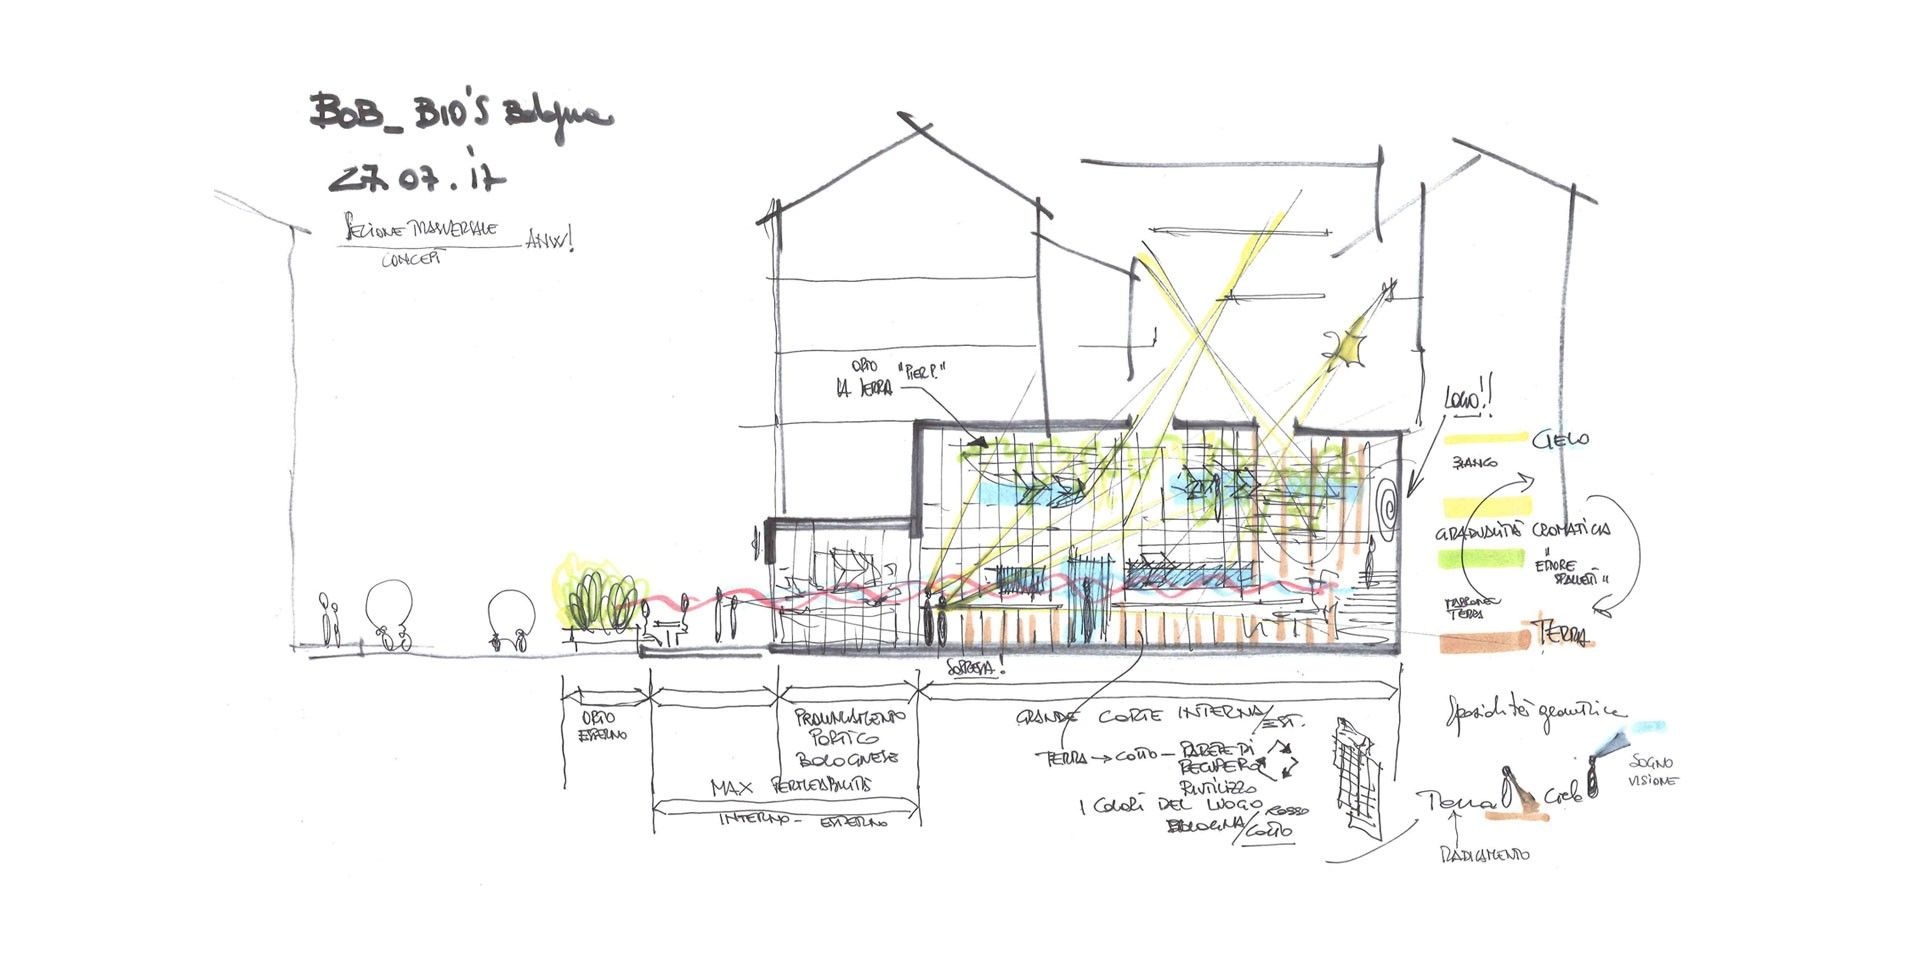 BOB_ BIO'S Bologna
27.07.17
SEZIONE TRASVERSALE
CONCEPT
ANW!
ORTO
LA TERRA "PIER P."
LOGO!!
CIELO
BIANCO
GRADUALITÀ CROMATICA
"ETTORE
SPALLETTI"
MARRONE
TERRA
TERRA
SORPRESA!
ORTO
ESTERNO
PROLUNGAMENTO
PORTICO
BOLOGNESE
MAX PERMEABILITÀ
INTERNO - ESTERNO
GRANDE CORTE INTERNA/EST.
TERRA → COTTO — PARETE DI
RECUPERO
RIUTILIZZO
I COLORI DEL LUOGO
BOLOGNA/ROSSO
COTTO
geometrica
SOGNO
VISIONE
Terra
Cielo
RADICAMENTO